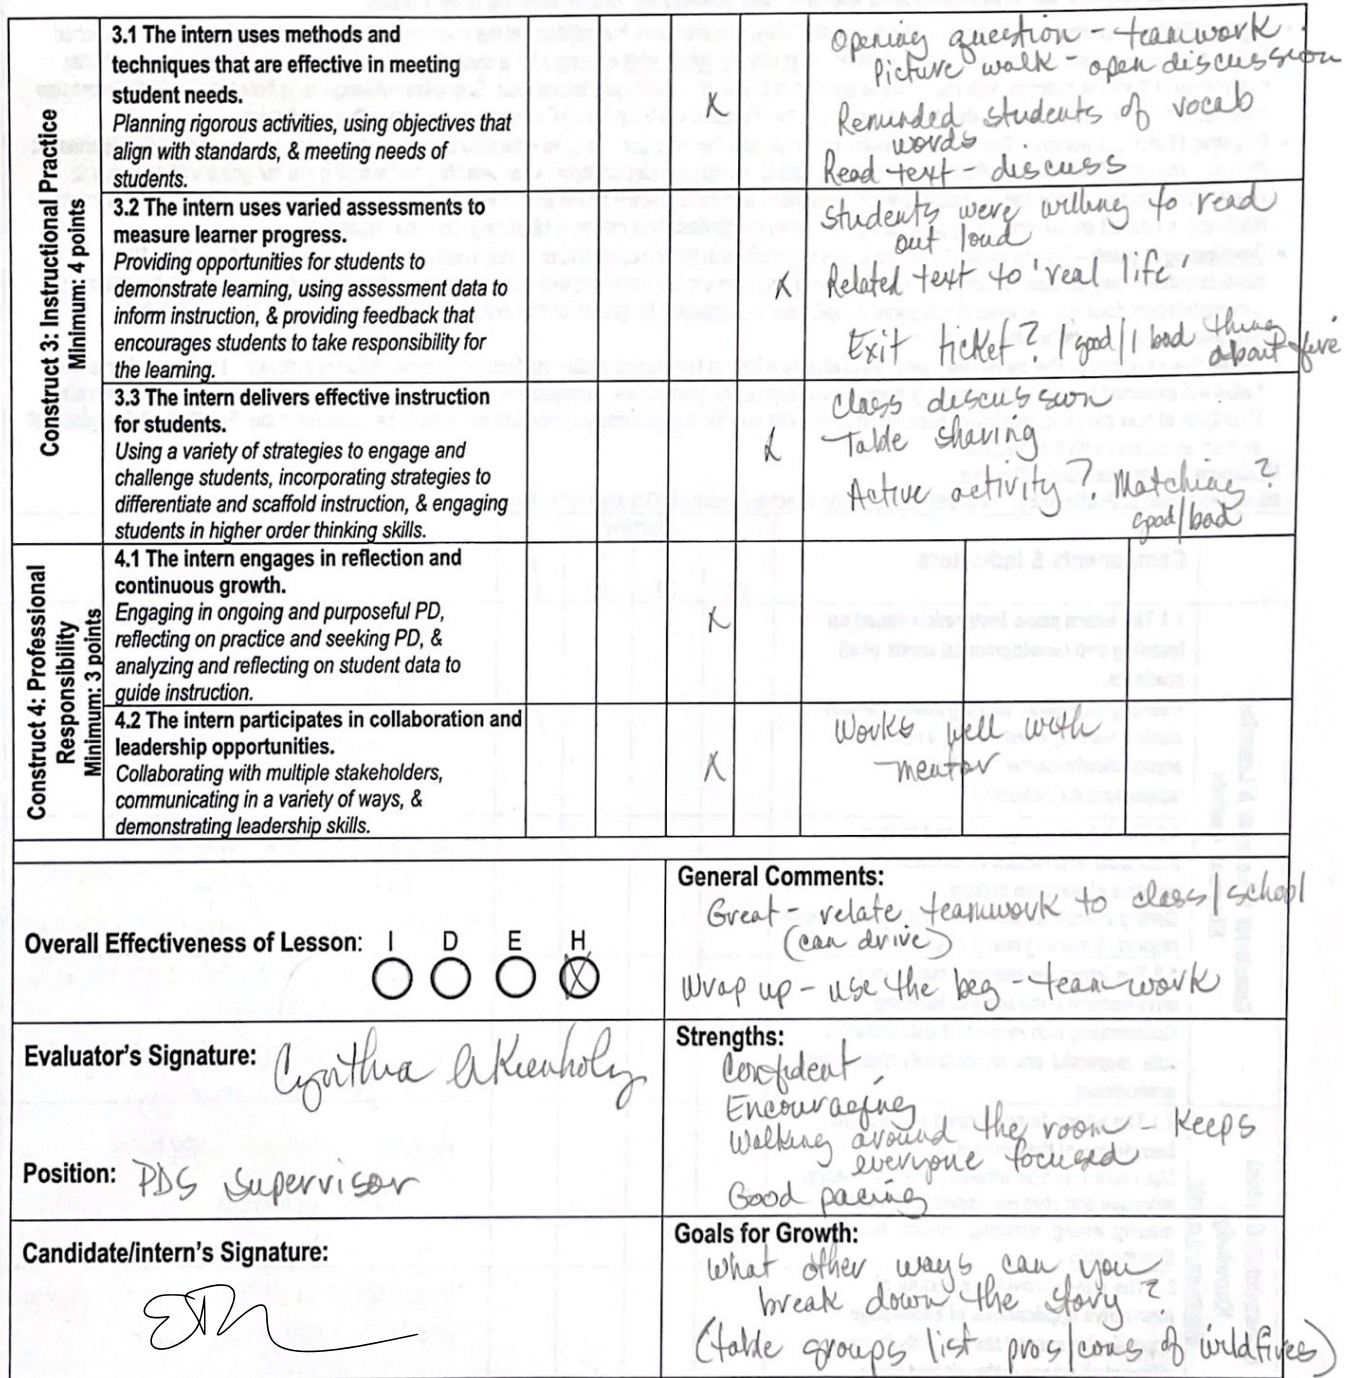 Construct 3: Instructional Practice
Minimum: 4 points
3.1 The intern uses methods and
techniques that are effective in meeting
student needs.
Planning rigorous activities, using objectives that
align with standards, & meeting needs of
students.
X
Opening question - teamwork
Picture walk - open discussion
Reminded students of vocab
words
Read text - discuss
3.2 The intern uses varied assessments to
measure learner progress.
Providing opportunities for students to
demonstrate learning, using assessment data to
inform instruction, & providing feedback that
encourages students to take responsibility for
the learning.
X
Students were willing to read
out loud
Related text to "real life"
Exit ticket? good/1 bad thing
about fire
3.3 The intern delivers effective instruction
for students.
Using a variety of strategies to engage and
challenge students, incorporating strategies to
differentiate and scaffold instruction, & engaging
students in higher order thinking skills.
X
Class discussion
Table sharing
Active activity? Matching?
good/bad
Construct 4: Professional
Responsibility
Minimum: 3 points
4.1 The intern engages in reflection and
continuous growth.
Engaging in ongoing and purposeful PD,
reflecting on practice and seeking PD, &
analyzing and reflecting on student data to
guide instruction.
X
4.2 The intern participates in collaboration and
leadership opportunities.
Collaborating with multiple stakeholders,
communicating in a variety of ways, &
demonstrating leadership skills.
X
Works well with
mentor
Overall Effectiveness of Lesson: I D E H
X
General Comments:
Great - relate teamwork to class/school
(can drive)
Wrap up - use the beg - team work
Evaluator's Signature: Cynthia
Position: PDS Supervisor
Strengths:
Confident
Encouraging
Walking around the room - keeps
everyone focused
Good pacing
Candidate/intern's Signature:
Goals for Growth:
What other ways can you
break down the story?
(table groups list pros cons of wildfires)